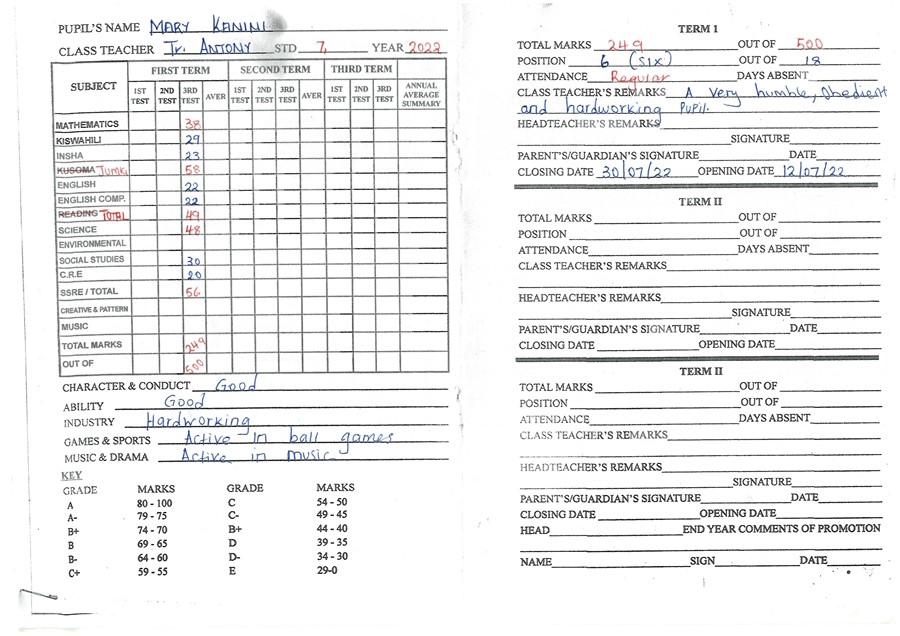 PUPIL'S NAME MARY KANINI
CLASS TEACHER Tr. ANTONY STD 7, YEAR 2022
SUBJECT FIRST TERM SECOND TERM THIRD TERM
1ST TEST 2ND TEST 3RD TEST AVER 1ST TEST 2ND TEST 3RD TEST AVER 1ST TEST 2ND TEST 3RD TEST ANNUAL AVERAGE SUMMARY
MATHEMATICS 38
KISWAHILI 29
INSHA 23
KUSOMA Jumla 58
ENGLISH 22
ENGLISH COMP. 22
READING TOTAL 49
SCIENCE 48
ENVIRONMENTAL
SOCIAL STUDIES 30
C.R.E 20
SSRE / TOTAL 56
CREATIVE & PATTERN
MUSIC
TOTAL MARKS 249
OUT OF 500
CHARACTER & CONDUCT Good
ABILITY Good
INDUSTRY Hardworking
GAMES & SPORTS Active in ball games
MUSIC & DRAMA Active in music
KEY
GRADE MARKS GRADE MARKS
A 80 - 100 C 54 - 50
A- 79 - 75 C- 49 - 45
B+ 74 - 70 B+ 44 - 40
B 69 - 65 D 39 - 35
B- 64 - 60 D- 34 - 30
C+ 59 - 55 E 29-0
TERM 1
TOTAL MARKS 249 OUT OF 500
POSITION 6 (SIX) OUT OF 18
ATTENDANCE Regular DAYS ABSENT
CLASS TEACHER'S REMARKS A very humble, Obedient
and hardworking Pupil.
HEADTEACHER'S REMARKS
SIGNATURE
PARENT'S/GUARDIAN'S SIGNATURE DATE
CLOSING DATE 30/07/22 OPENING DATE 12/07/22
TERM II
TOTAL MARKS OUT OF
POSITION OUT OF
ATTENDANCE DAYS ABSENT
CLASS TEACHER'S REMARKS
HEADTEACHER'S REMARKS
SIGNATURE
PARENT'S/GUARDIAN'S SIGNATURE DATE
CLOSING DATE OPENING DATE
TERM II
TOTAL MARKS OUT OF
POSITION OUT OF
ATTENDANCE DAYS ABSENT
CLASS TEACHER'S REMARKS
HEADTEACHER'S REMARKS
SIGNATURE
PARENT'S/GUARDIAN'S SIGNATURE DATE
CLOSING DATE OPENING DATE
HEAD END YEAR COMMENTS OF PROMOTION
NAME SIGN DATE